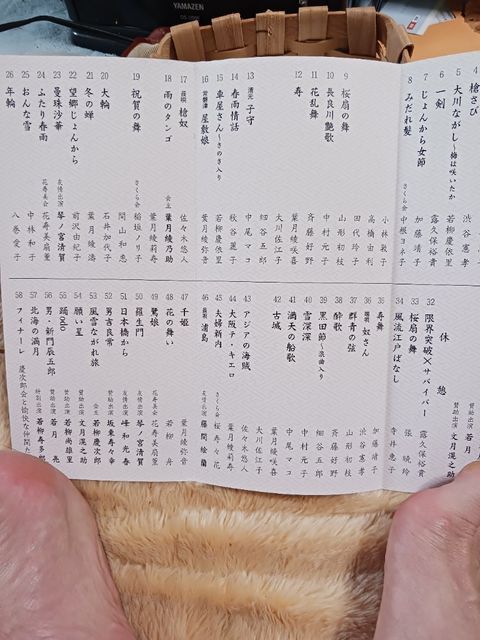 YAMAZEN
4 槍さび 渋谷憲孝
5 大川ながし〜梅は咲いたか 若柳慶依里
6 一剣 露久保裕貴
7 じょんから女節 加藤靖子
8 みだれ髪 さくら会 中根ヨネ子
9 桜扇の舞 小林敦子
高橋由利
田代玲子
10 長良川艶歌 中村元子
山形初枝
11 花乱舞 斉藤好野
12 寿 葉月綾咲喜
大川佐江子
細谷五郎
13 清元 子守 中尾マコ
14 春雨情話 秋谷麗子
15 車屋さん〜さのさ入り 若柳慶依里
16 常磐津 屋敷娘 葉月綾弥音
17 長唄 槍奴 佐々木悠人
18 雨のタンゴ 会主 葉月綾乃助
19 祝賀の舞 葉月綾莉寿
さくら会 稲垣ノリ子
関山和恵
20 大輪 石井加代子
21 冬の蝉 葉月綾濤
22 望郷じょんから 前沢由紀子
23 曼珠沙華 友情出演 琴ノ宮清賀
24 ふたり春雨 花寿美会 花寿美扇菫
25 おんな雪 中林和子
26 年輪 八巻愛子
賛助出演 文月滉之助
賛助出演 若月
休憩
32 限界突破×サバイバー 賛助出演 文月滉之助
33 桜扇の舞 露久保裕貴
張暁玲
34 風流江戸ばなし 寺井恵子
35 寿舞 加藤靖子
36 端唄 奴さん 渋谷憲孝
37 群青の弦 山形初枝
38 酔歌 斉藤好野
39 黒田節〜浪曲入り 細谷五郎
40 雪深深 中村元子
41 満天の船歌 中尾マコ
42 古城 葉月綾咲喜
大川佐江子
43 アジアの海賊 佐々木悠人
44 大阪テ・キエロ 葉月綾莉寿
45 夫婦新内 さくら寿会 桜寿々花
46 長唄 浦島 友情出演 藤間絵蘭
47 千姫 葉月綾弥音
48 花の舞い 若柳舟
49 鷺娘 花寿美会 花寿美扇菫
50 羅生門 友情出演 琴ノ宮清賀
51 日本橋から 友情出演 峰和光春
52 男吉良常 賛助出演 坂東寿々幸
53 風雪ながれ旅 会主 若柳慶次郎
54 願い星 賛助出演 若柳尚雄里
55 踊odo 賛助出演 文月滉之助
56 男・新門辰五郎 賛助出演 若月亮
57 北海の満月 特別出演 若柳寿多郎
58 フィナーレ 慶次郎会と愉快な仲間た